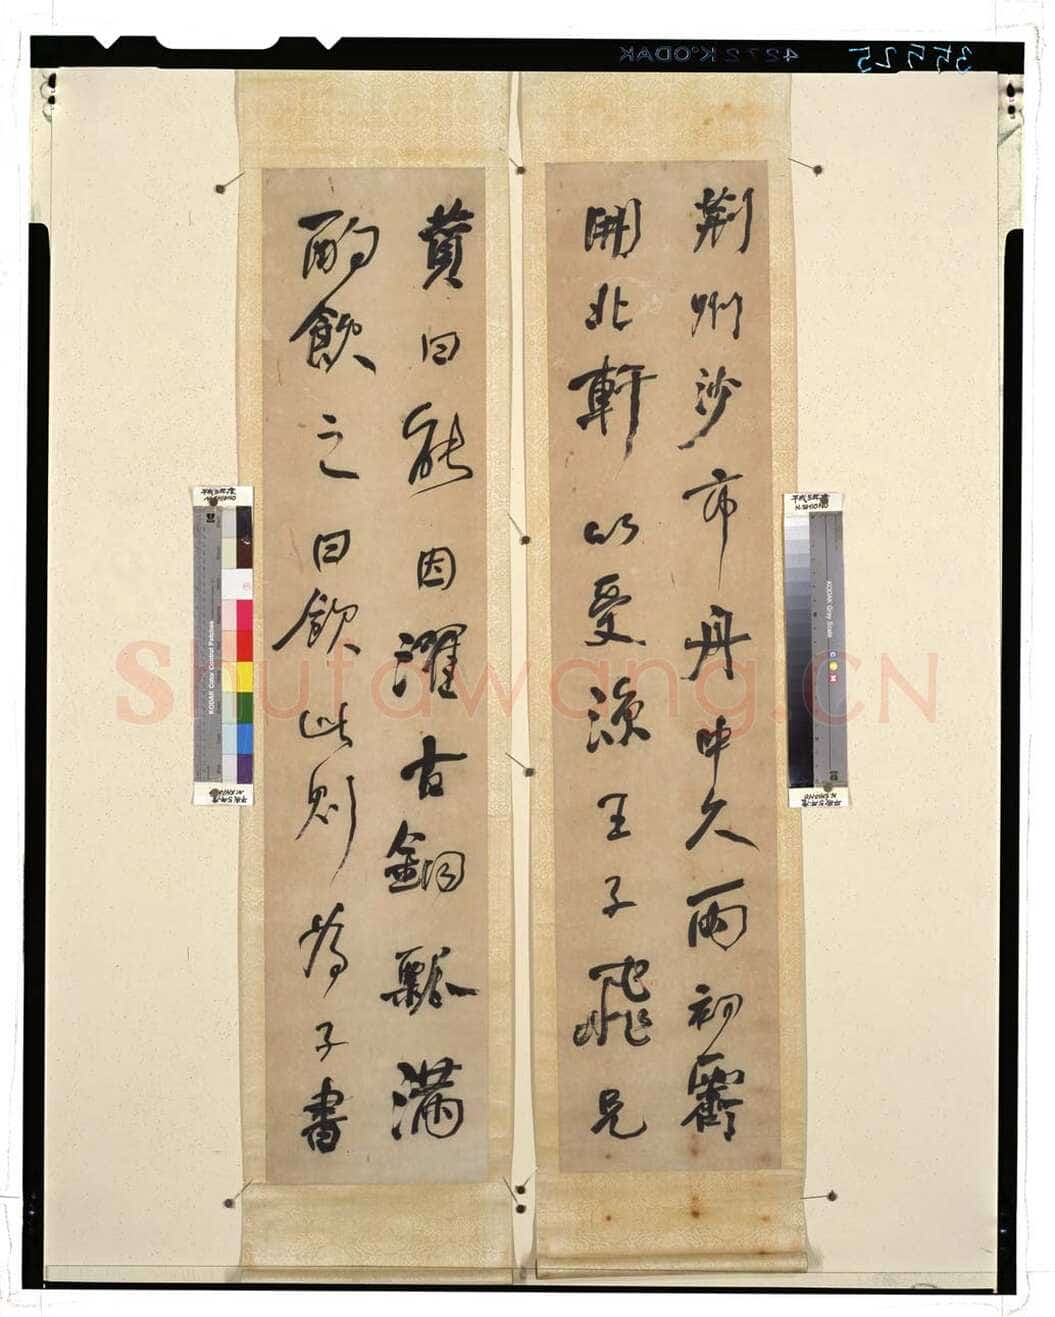 荆州沙市舟中久雨初霽
開北軒以受涼王子飛兄
蕡曰能因濯古銅瓢滿
酌飲之曰飲此則為子書
Shufawang.CN
4272 KODAK
35525
KODAK Color Control Patches
KODAK Gray Scale